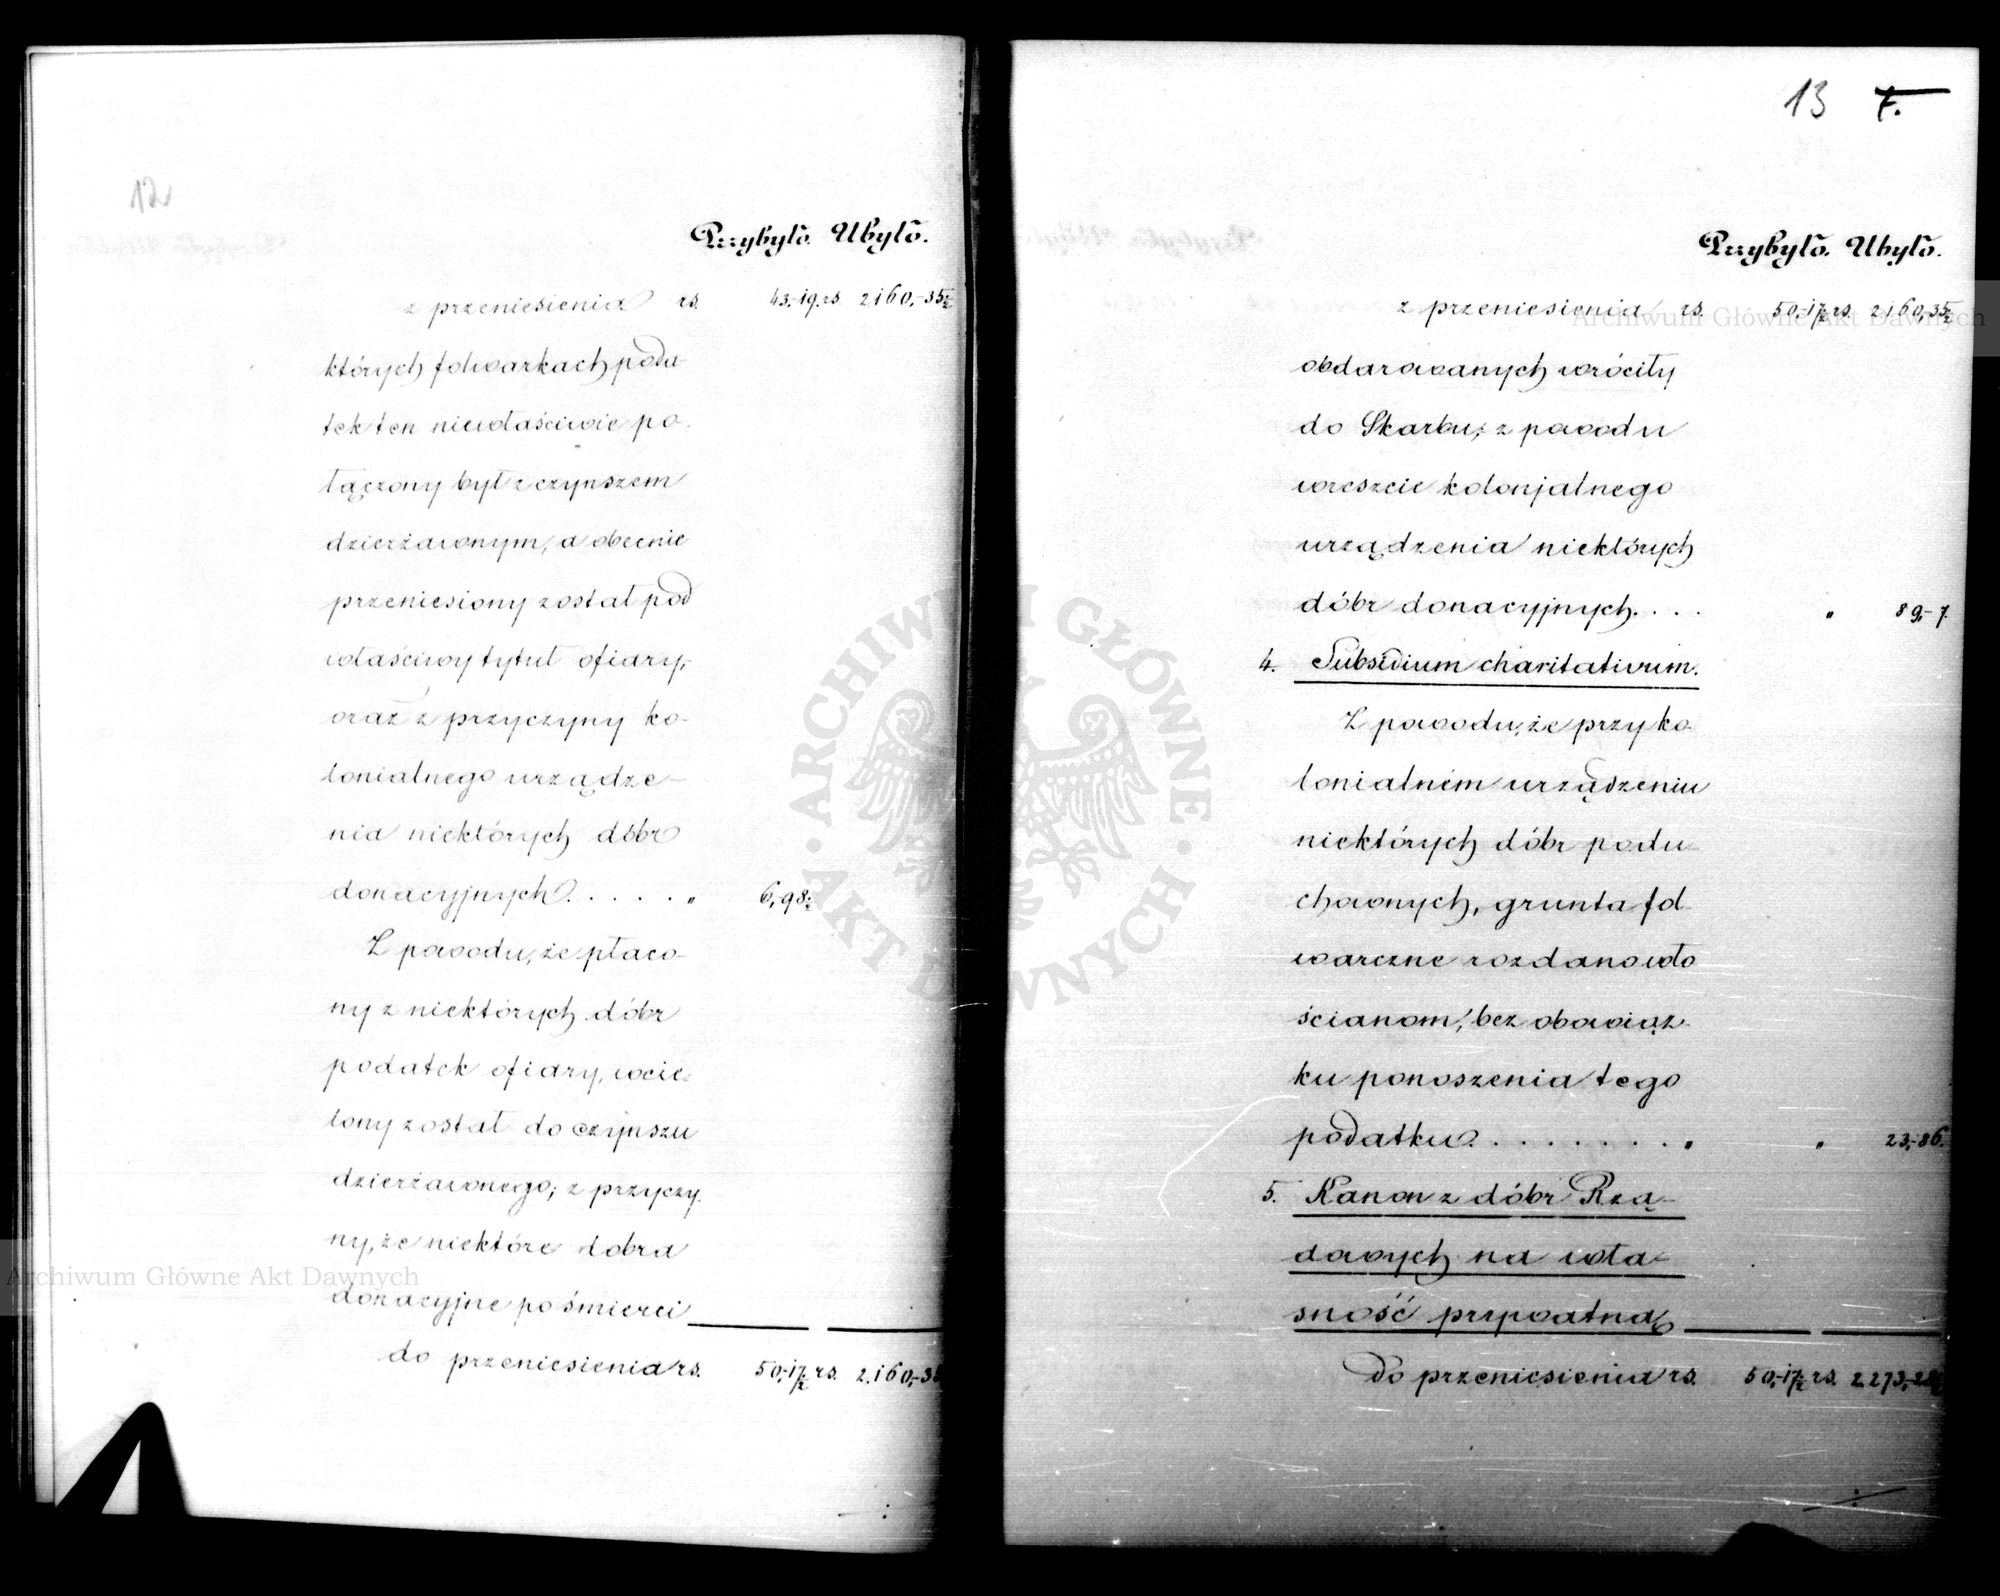 12
Przybyło. Ubyło.
z przeniesienia rs. 43,-19. rs 2160,-35½
których folwarkach poda-
tek ten niewłaściwie po-
łączony był z czynszem
dzierżawnym, a obecnie
przeniesiony został pod
właściwy tytuł ofiary,
oraz z przyczyny ko-
lonialnego urządze-
nia niektórych dóbr
donacyjnych. . . . . „ 6,-98½
Z powodu, że płaco-
ny z niektórych dóbr
podatek ofiary, wcie-
lony został do czynszu
dzierżawnego; z przyczy-
ny, że niektóre dobra
donacyjne po śmierci
do przeniesienia rs. 50,-17½ rs. 2.160,-35
13 7.
Przybyło. Ubyło.
z przeniesienia rs. 50,-17½ rs. 2160,-35½
obdarowanych wróciły
do Skarbu; z powodu
wreszcie kolonjalnego
urządzenia niektórych
dóbr donacyjnych. . . . „ 89,-7.
4. Subsidium charitativum.
Z powodu, że przy ko-
lonialném urządzeniu
niektórych dóbr podu-
chownych, grunta fol-
warczne rozdano wło-
ścianom, bez obowiąz-
ku ponoszenia tego
podatku. . . . . . . . . „ „ 23,-86.
5. Kanon z dóbr Rzą-
dowych na wła-
sność prywatną
do przeniesienia rs. 50,-17½ rs. 2.273,-28½
ARCHIWUM GŁÓWNE AKT DAWNYCH
Archiwum Główne Akt Dawnych
Archiwum Główne Akt Dawnych